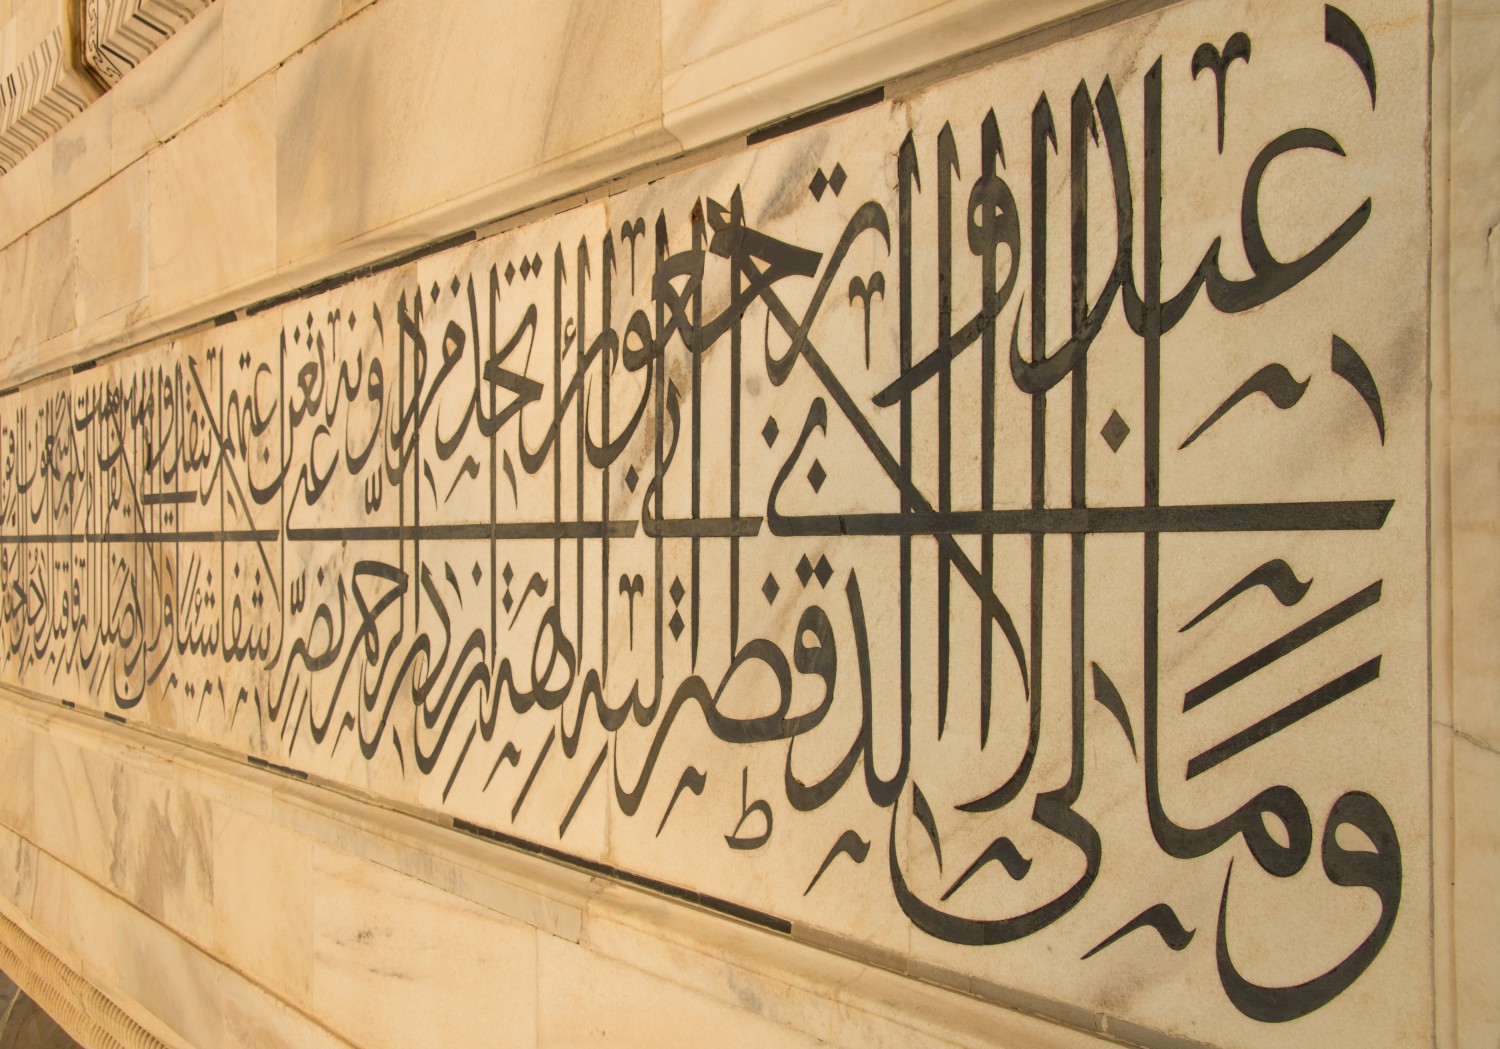 وما لي لا أعبد الذي فطرني وإليه ترجعون أأتخذ من دونه آلهة إن يردن الرحمن بضر لا تغن عني شفاعتهم شيئا ولا ينقذون إني إذا لفي ضلال مبين إني آمنت بربكم فاسمعون قيل ادخل